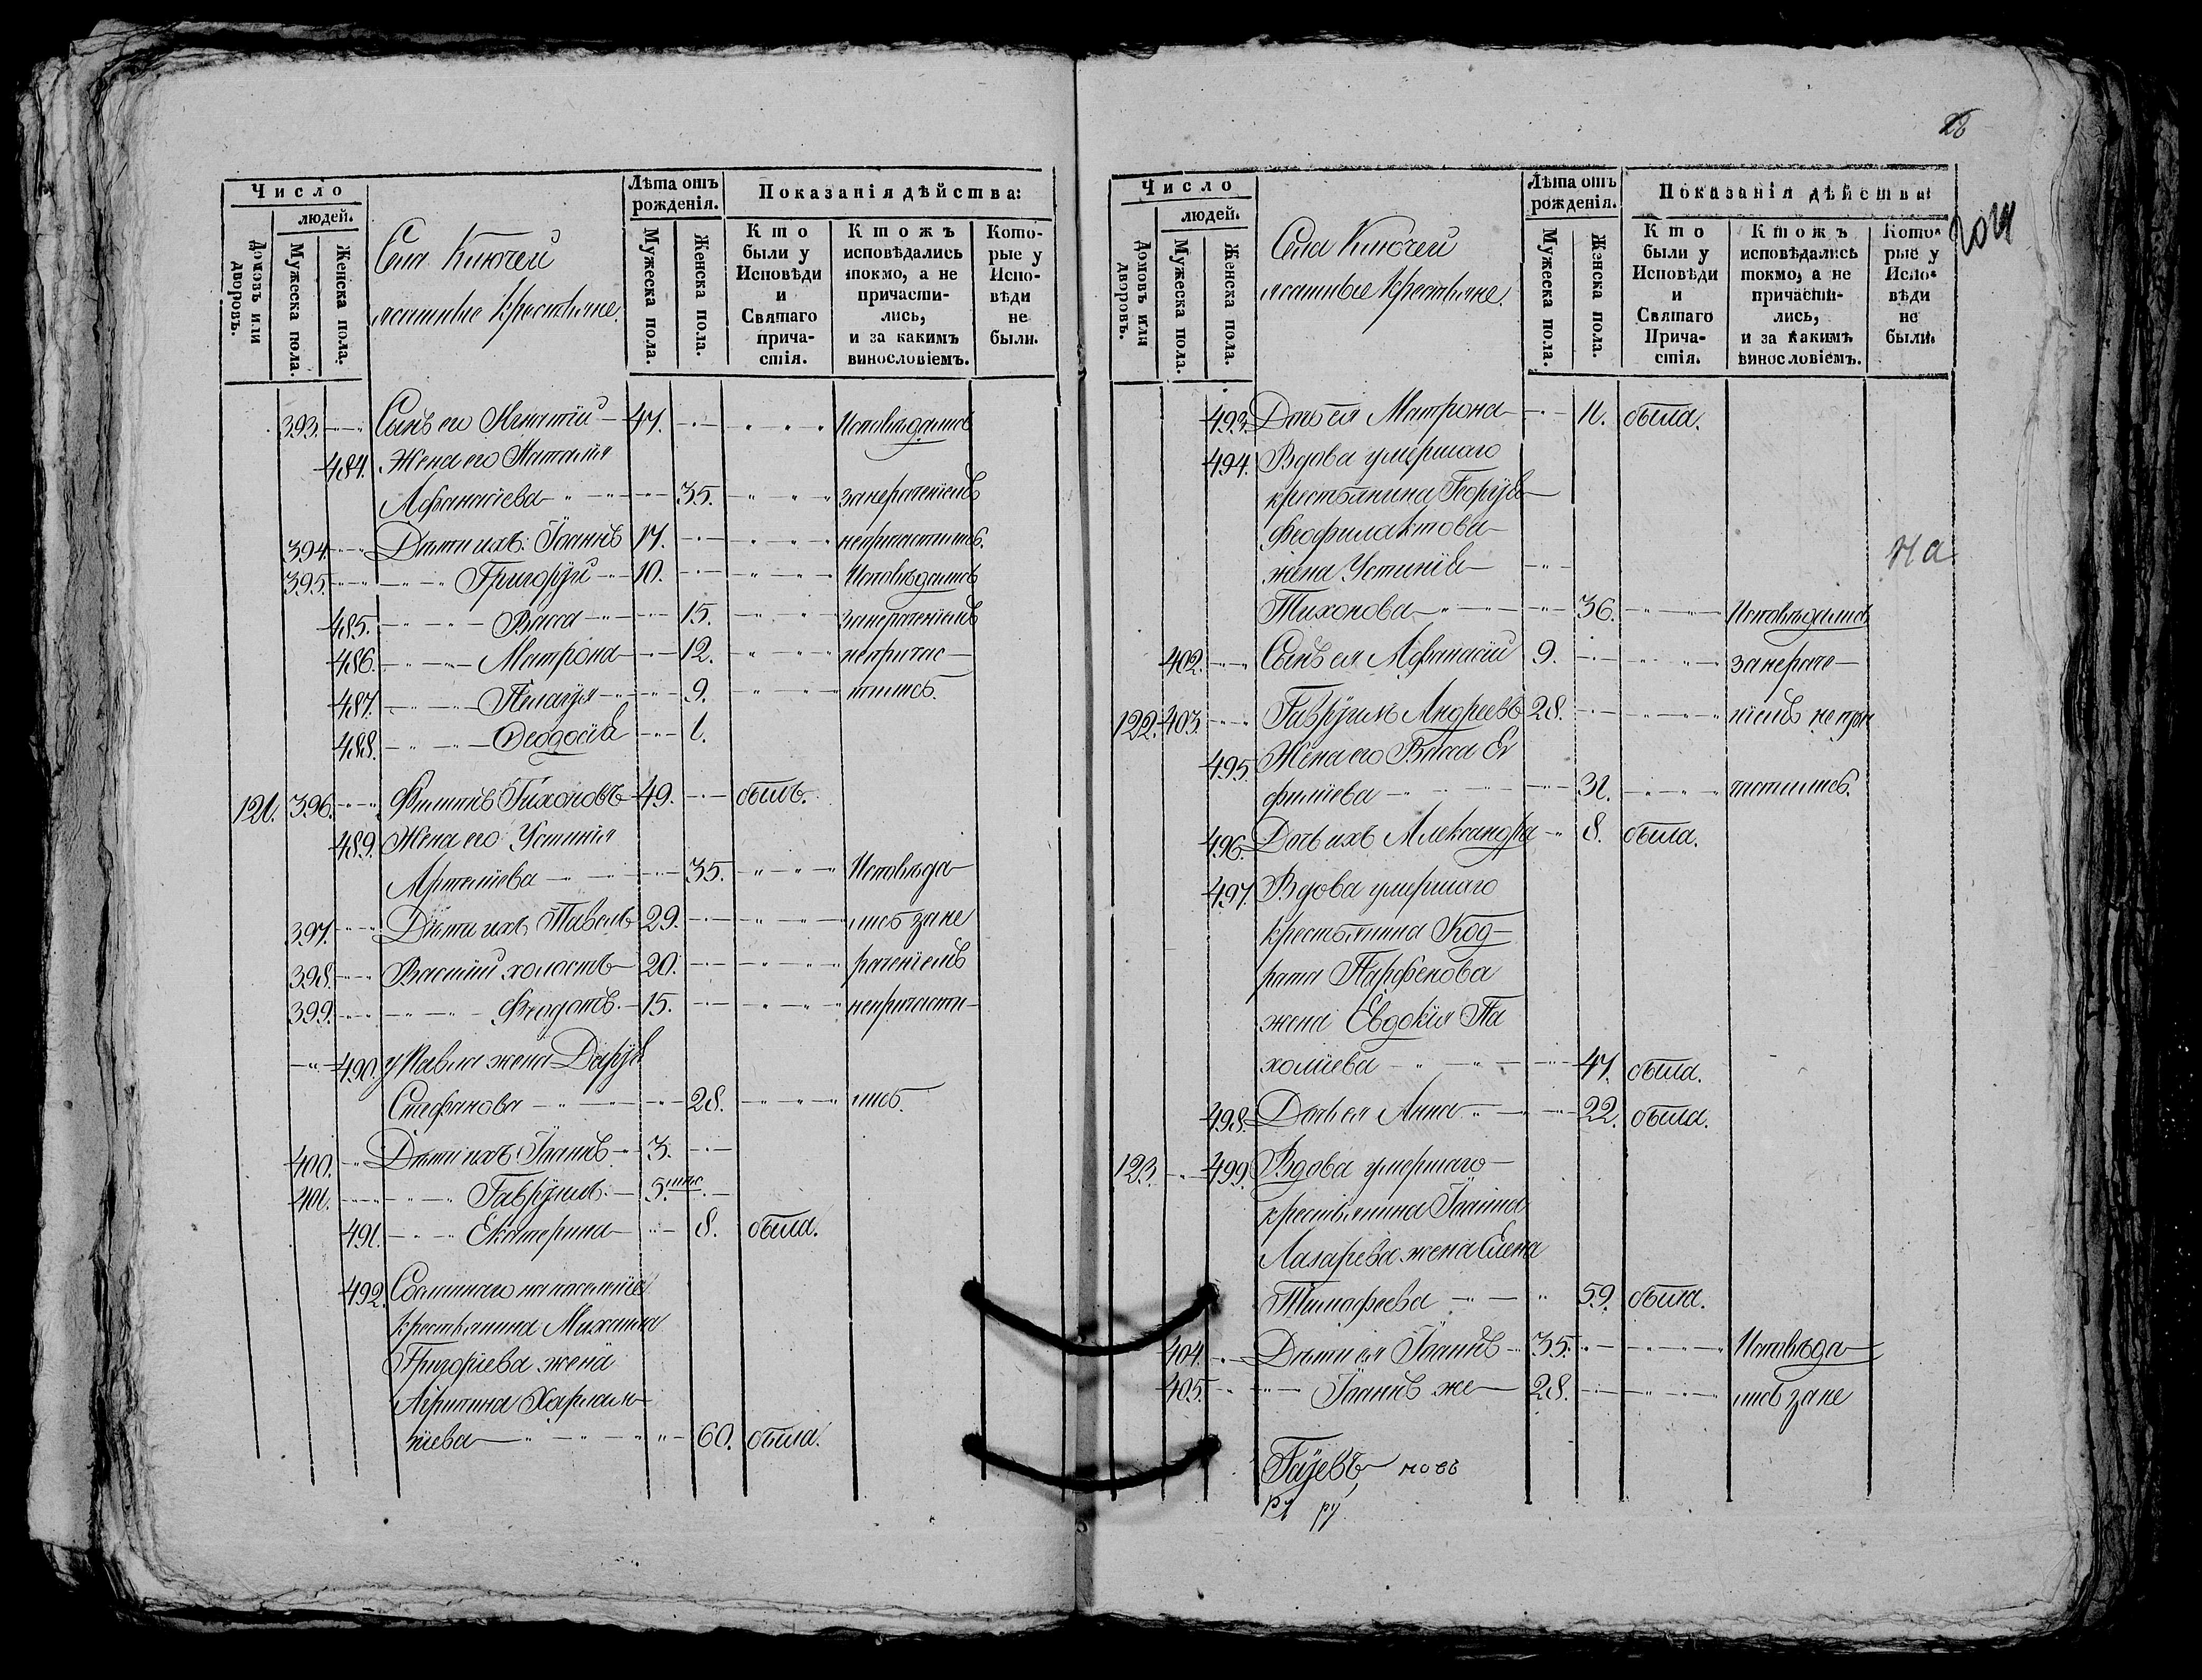 Число
людей.
Домовъ или дворовъ.
Мужеска пола.
Женска пола.
Села Ключей
ясашные крестьяне.
Лѣта отъ рожденія.
Мужеска пола.
Женска пола.
Показанія дѣйства:
Кто были у Исповѣди и Святаго причастія.
Ктожъ исповѣдались токмо, а не причастились, и за какимъ винословіемъ.
Которые у Исповѣди не были.
393. Сынъ его Игнатій 47. Исповѣдались
484. Жена его Наталія
Афанасіева 35. занераченіемъ
394. Дѣти ихъ: Іоаннъ 17. непричастились.
395. Григорій 10. Исповѣдались
485. Васса 15. занераченіемъ
486. Матрона 12. непричас-
487. Пелагія 9. тились.
488. Феодосія 1.
121. 396. Филипъ Тихоновъ 49. былъ.
489. Жена его Устинія
35. Исповѣда-
397. Дѣти ихъ Павелъ 29. лись зане
398. Василій холостъ 20. раченіемъ
399. Феодотъ. 15. непричасти-
490. у Павла жена Дарія
Стефанова 28. лись.
400. Дѣти ихъ Іоаннъ 3.
401. Гавріилъ 5.
491. Екатерина 8. была.
492. Сосланнаго на поселеніе
крестьянина Михаила
Григоріева жена
Агрипина Харлам-
піева 60. была.
28
Число
людей.
Домовъ или дворовъ.
Мужеска пола.
Женска пола.
Села Ключей
ясашные крестьяне.
Лѣта отъ рожденія.
Мужеска пола.
Женска пола.
Показанія дѣйства:
Кто были у Исповѣди и Святаго Причастія.
Ктожъ исповѣдались токмо, а не причастились, и за какимъ винословіемъ.
Которые у Исповѣди не были.
493. Дочь ея Матрона 11. была.
494. Вдова умершаго
крестьянина Георгія
Феофилактова
жена Устинія
Тихонова 36. Исповѣдались
402. Сынъ ея Афанасій 9. занераче-
122. 403. Гавріилъ Андреевъ 28. ніемъ не при
495. Жена его Васса Ев
фиміева 31. частились.
496. Дочь ихъ Александра 8. была.
497. Вдова умершаго
крестьянина Код-
рата Парфенова
жена Евдокія Па
хоміева 47. была.
498. Дочь ея Анна 22. была.
123. 499. Вдова умершаго
крестьянина Іоанна
Лазарева жена Елена
Тимофеева 59. была.
404. Дѣти ея Іоаннъ 35. Исповѣда-
405. Іоаннъ же 28. лись зане
новъ